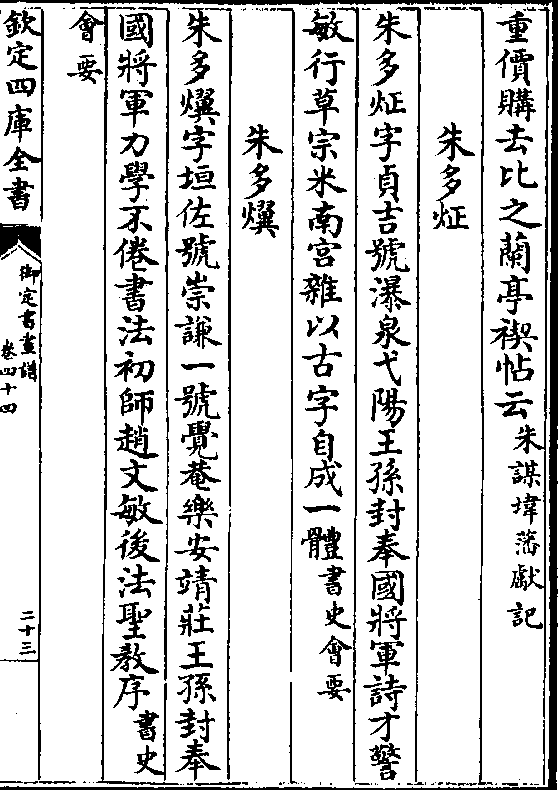 重價購去比之蘭亭禊帖云朱謀㙔藩獻記
朱多炡
朱多炡字貞吉號瀑泉弋陽王孫封奉國將軍詩才警
敏行草宗米南宮雜以古字自成一體書史會要
朱多㸅
朱多㸅字垣佐號崇謙一號覺菴樂安靖莊王孫封奉
國將軍力學不倦書法初師趙文敏後法聖教序書史
會要
欽定四庫全書
御定書畫譜
卷四十四
二十三